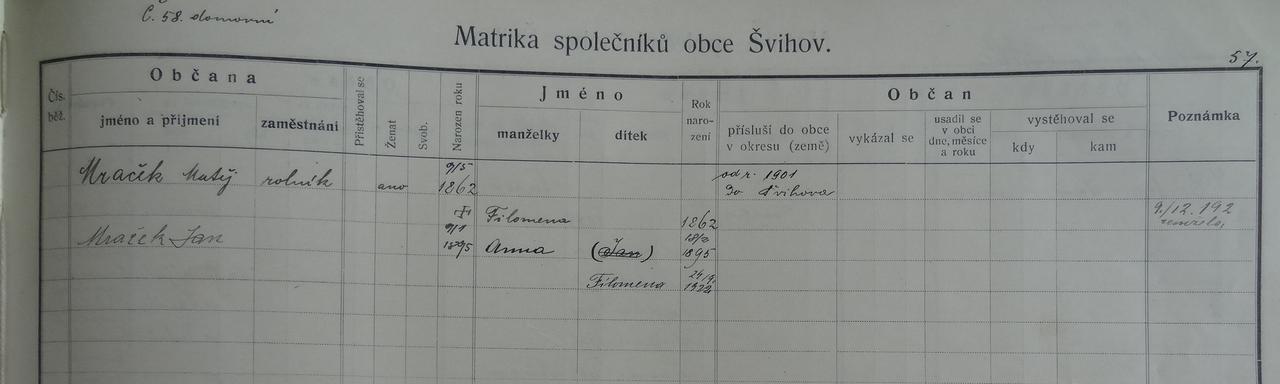 Č. 58. domovní
Matrika společníků obce Švihov.
57.
Čís. běž.
Občana
jméno a přijmení
zaměstnání
Přistěhoval se
Ženat
Svob.
Narozen roku
Jméno
manželky
dítek
Rok naro- zení
Občan
přísluší do obce v okresu (země)
vykázal se
usadil se v obci dne, měsíce a roku
vystěhoval se
kdy
kam
Poznámka
Mraček Matěj rolník ano 9/5 1862 od r. 1901 Do Švihova
Filomena 1862 9./12. 192 zemřela
Mraček Jan 9/1 1895 Anna (Jan) 1895
Filomena 1922